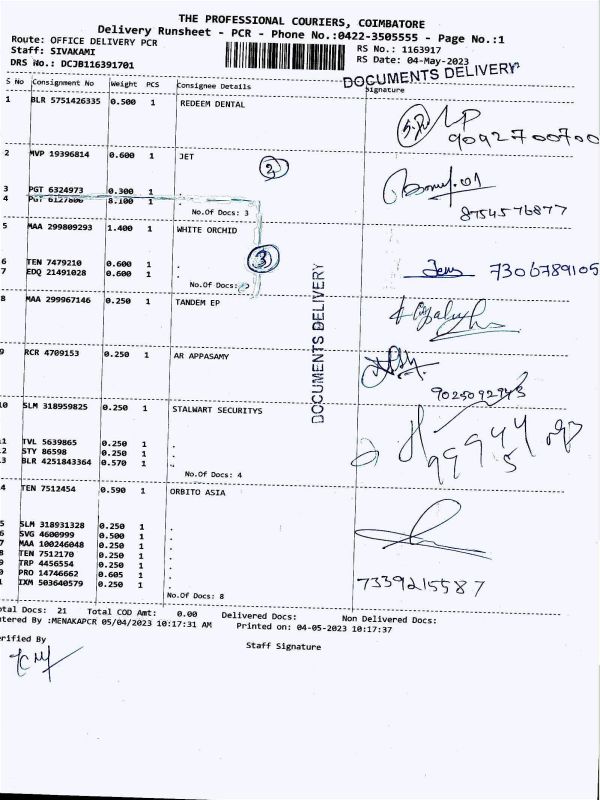 THE PROFESSIONAL COURIERS, COIMBATORE
Delivery Runsheet - PCR - Phone No.:0422-3505555 - Page No.:1
Route: OFFICE DELIVERY PCR
RS No.: 1163917
Staff: SIVAKAMI
RS Date: 04-May-2023
DRS No.: DCJB116391701
DOCUMENTS DELIVERY
S No Consignment No Weight PCS Consignee Details Signature
1 BLR 5751426335 0.500 1 REDEEM DENTAL
9092700700
2 MVP 19396814 0.600 1 JET
2
3 PGT 6324973 0.300 1 .
4 PGT 6127806 8.100 1 .
No.Of Docs: 3
8754576877
5 MAA 299809293 1.400 1 WHITE ORCHID
3
6 TEN 7479210 0.600 1 .
7306789105
7 EDQ 21491028 0.600 1 .
No.Of Docs:
DOCUMENTS DELIVERY
8 MAA 299967146 0.250 1 TANDEM EP
9 RCR 4709153 0.250 1 AR APPASAMY
9025092943
10 SLM 318959825 0.250 1 STALWART SECURITYS
1 TVL 5639865 0.250 1 .
2 STY 86598 0.250 1 .
3 BLR 4251843364 0.570 1 .
No.Of Docs: 4
4 TEN 7512454 0.590 1 ORBITO ASIA
5 SLM 318931328 0.250 1 .
6 SVG 4600999 0.500 1 .
7 MAA 100246048 0.250 1 .
8 TEN 7512170 0.250 1 .
9 TRP 4456554 0.250 1 .
0 PRO 14746662 0.605 1 .
1 IXM 503640579 0.250 1 .
7339215587
No.Of Docs: 8
otal Docs: 21 Total COD Amt: 0.00 Delivered Docs: Non Delivered Docs:
tered By :MENAKAPCR 05/04/2023 10:17:31 AM Printed on: 04-05-2023 10:17:37
erified By
Staff Signature